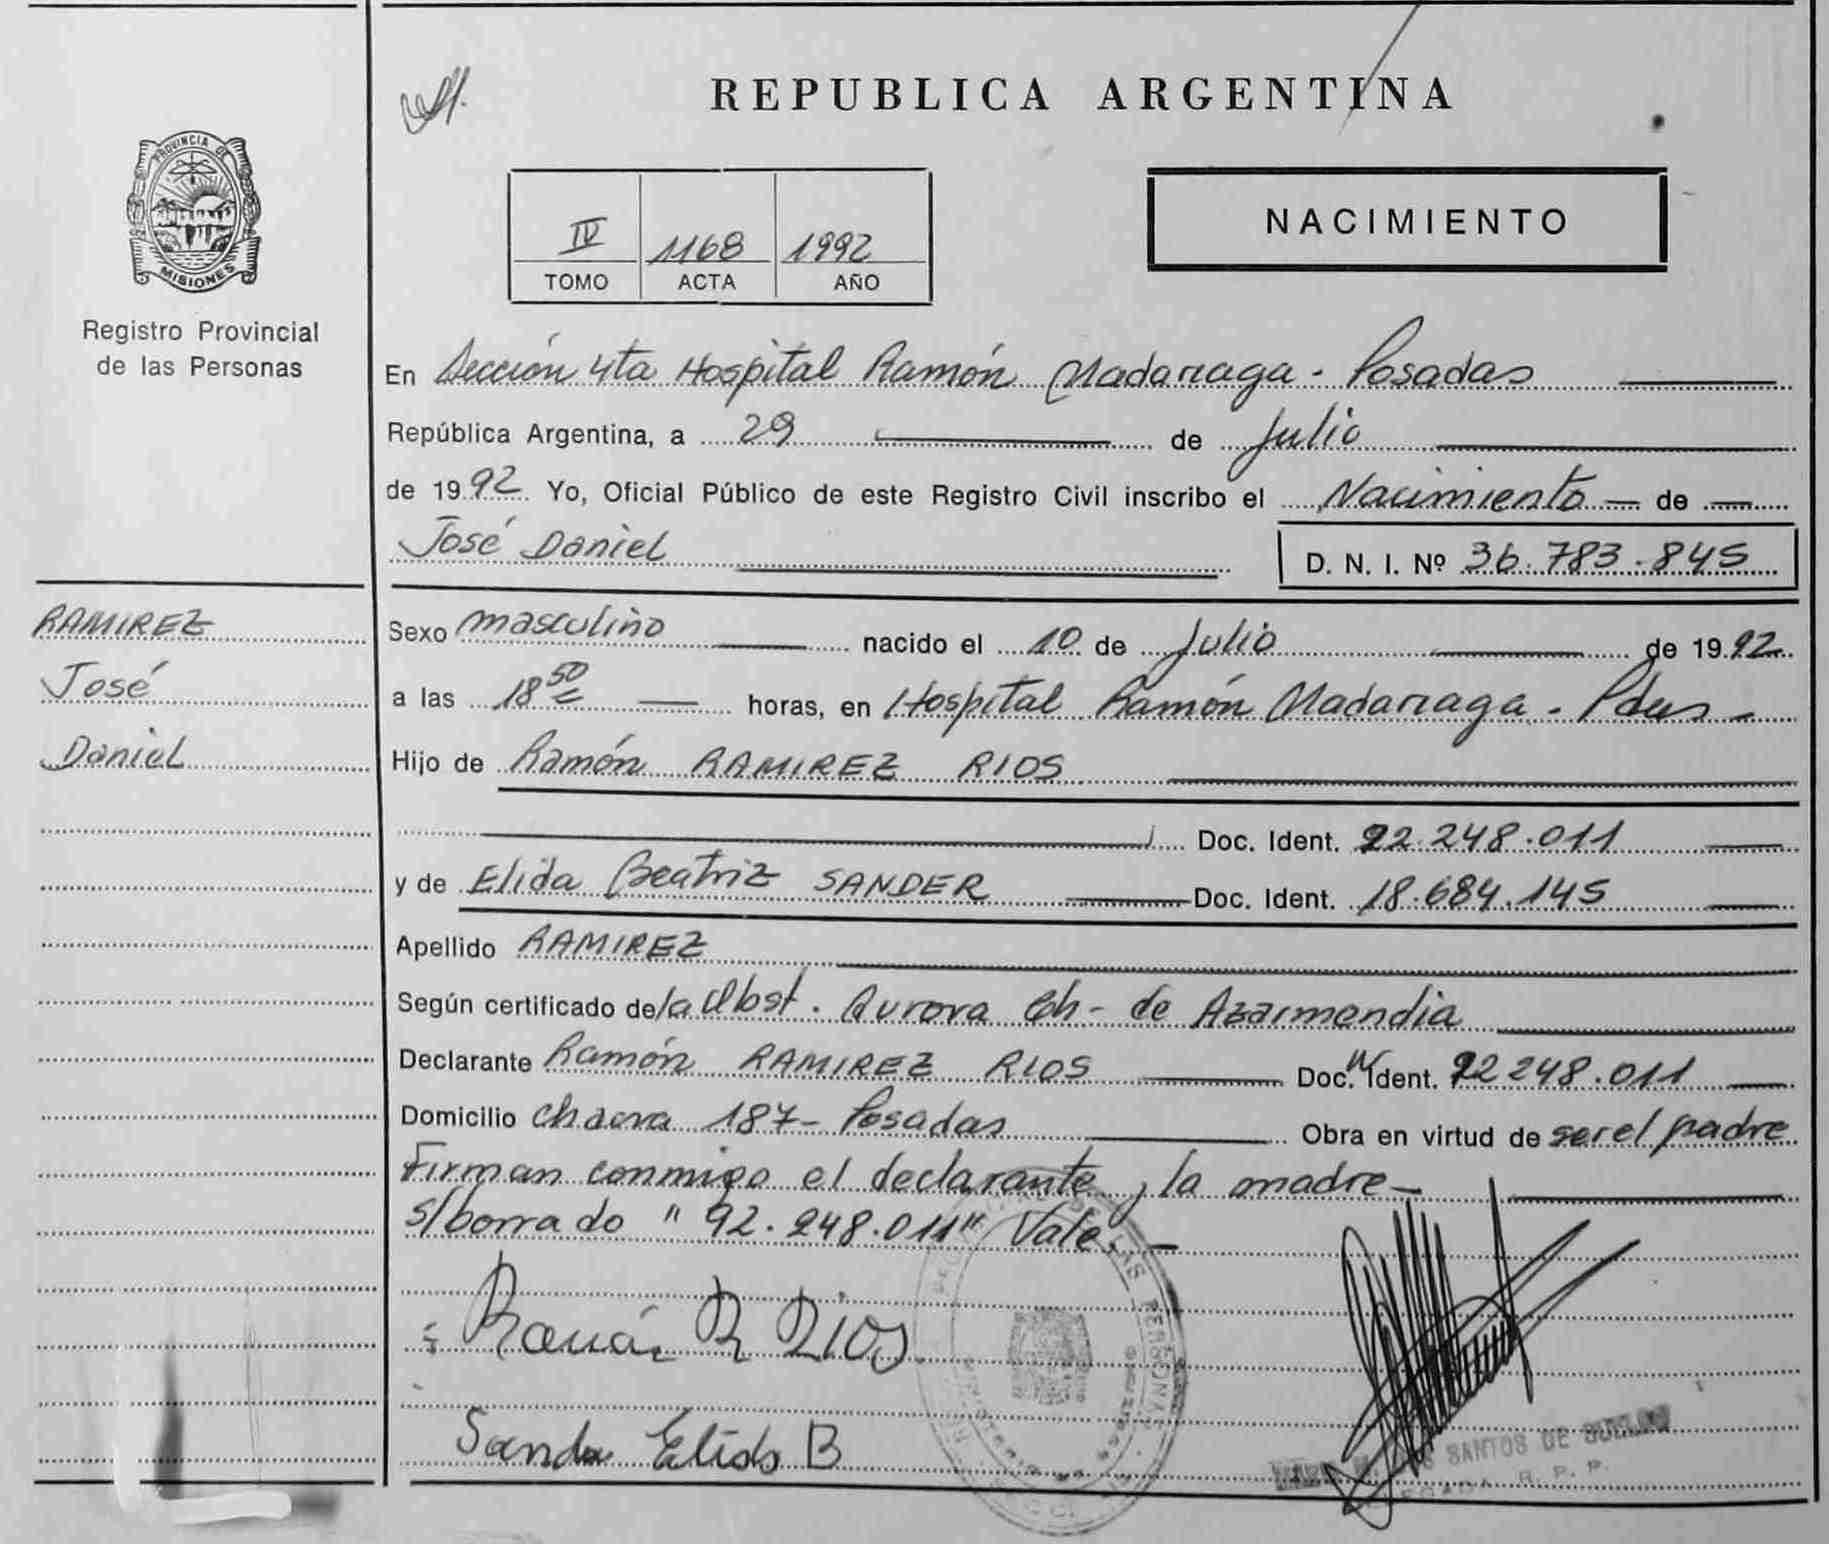 REPUBLICA ARGENTINA
PROVINCIA DE
MISIONES
Registro Provincial
de las Personas
IV 1168 1992
TOMO ACTA AÑO
NACIMIENTO
En Sección 4ta Hospital Ramón Madariaga - Posadas
República Argentina, a 29 de Julio
de 1992 Yo, Oficial Público de este Registro Civil inscribo el Nacimiento de
José Daniel D. N. I. Nº 36.783.845
RAMIREZ
José
Daniel
Sexo masculino nacido el 10 de Julio de 1992
a las 18 50 horas, en Hospital Ramón Madariaga - Pdas -
Hijo de Ramón RAMIREZ RIOS
Doc. Ident. 92.248.011
y de Elida Beatriz SANDER Doc. Ident. 18.684.145
Apellido RAMIREZ
Según certificado de la Obst. Aurora Ch- de Azarmendia
Declarante Ramón RAMIREZ RIOS Doc. Ident. 92 248.011
Domicilio chacra 187- Posadas Obra en virtud de ser el padre
Firman conmigo el declarante y la madre -
s/borrado "92.248.011" Vale. -
Ramón R Rios
Sander Elida B
LAS PERSONAS
SANTOS DE
R. P. P.